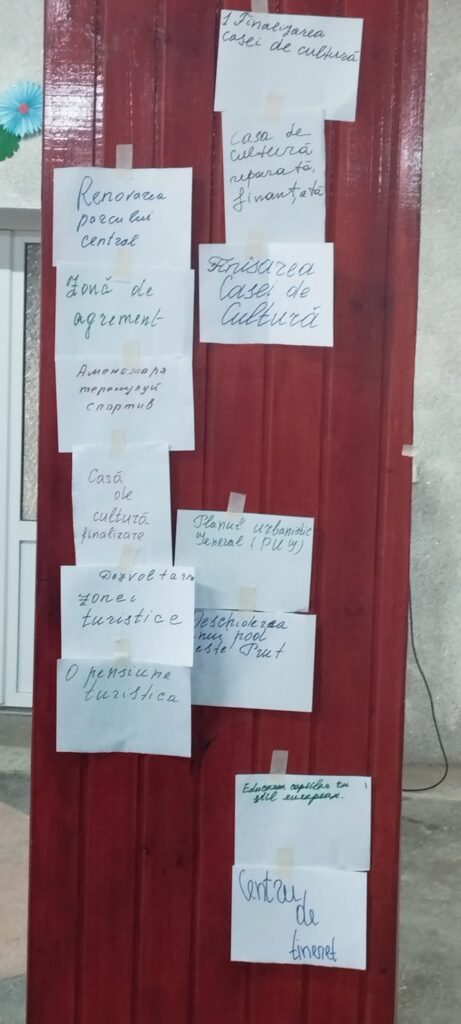 1 Finalizarea
casei de cultură
Casa de
cultură
reparată,
finanțată
Finisarea
Casei de
Cultură
Renovarea
parcului
central
Zonă de
agrement
Аменажаря
теренулуй
спортив
Casă
de
cultură
finalizare
Dezvoltarea
zonei
turistice
O pensiune
turistica
Planul urbanistic
General (PUG)
Deschiderea
unui pod
peste Prut
Educarea copiilor cu
stil european.
Centru
de
tineret